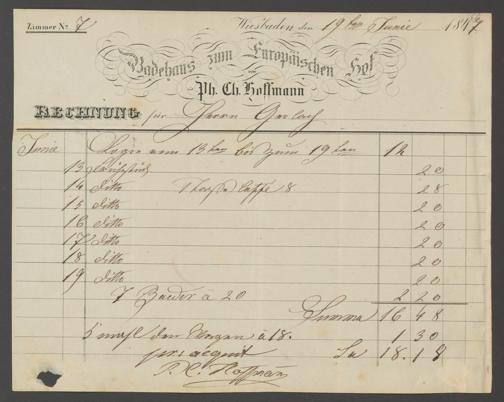 Zimmer No. 7 Wiesbaden den 19ten Junie 1847
Badehaus zum Europäischen Hof
von
Ph. Ch. Hoffmann
RECHNUNG für Herrn Gerlach
Junie Logis vom 13ten bis zum 19ten 12
13 Früchstück 20
14 ditto 1 Caffe 8 28
15 ditto 20
16 ditto 20
17 ditto 20
18 ditto 20
19 ditto 20
7 Baeder a 20 2 20
Summa 16 48
5 mahl den Morgen a 18. 1 30
pour acquit Sa 18.18
P. C. Hoffmann